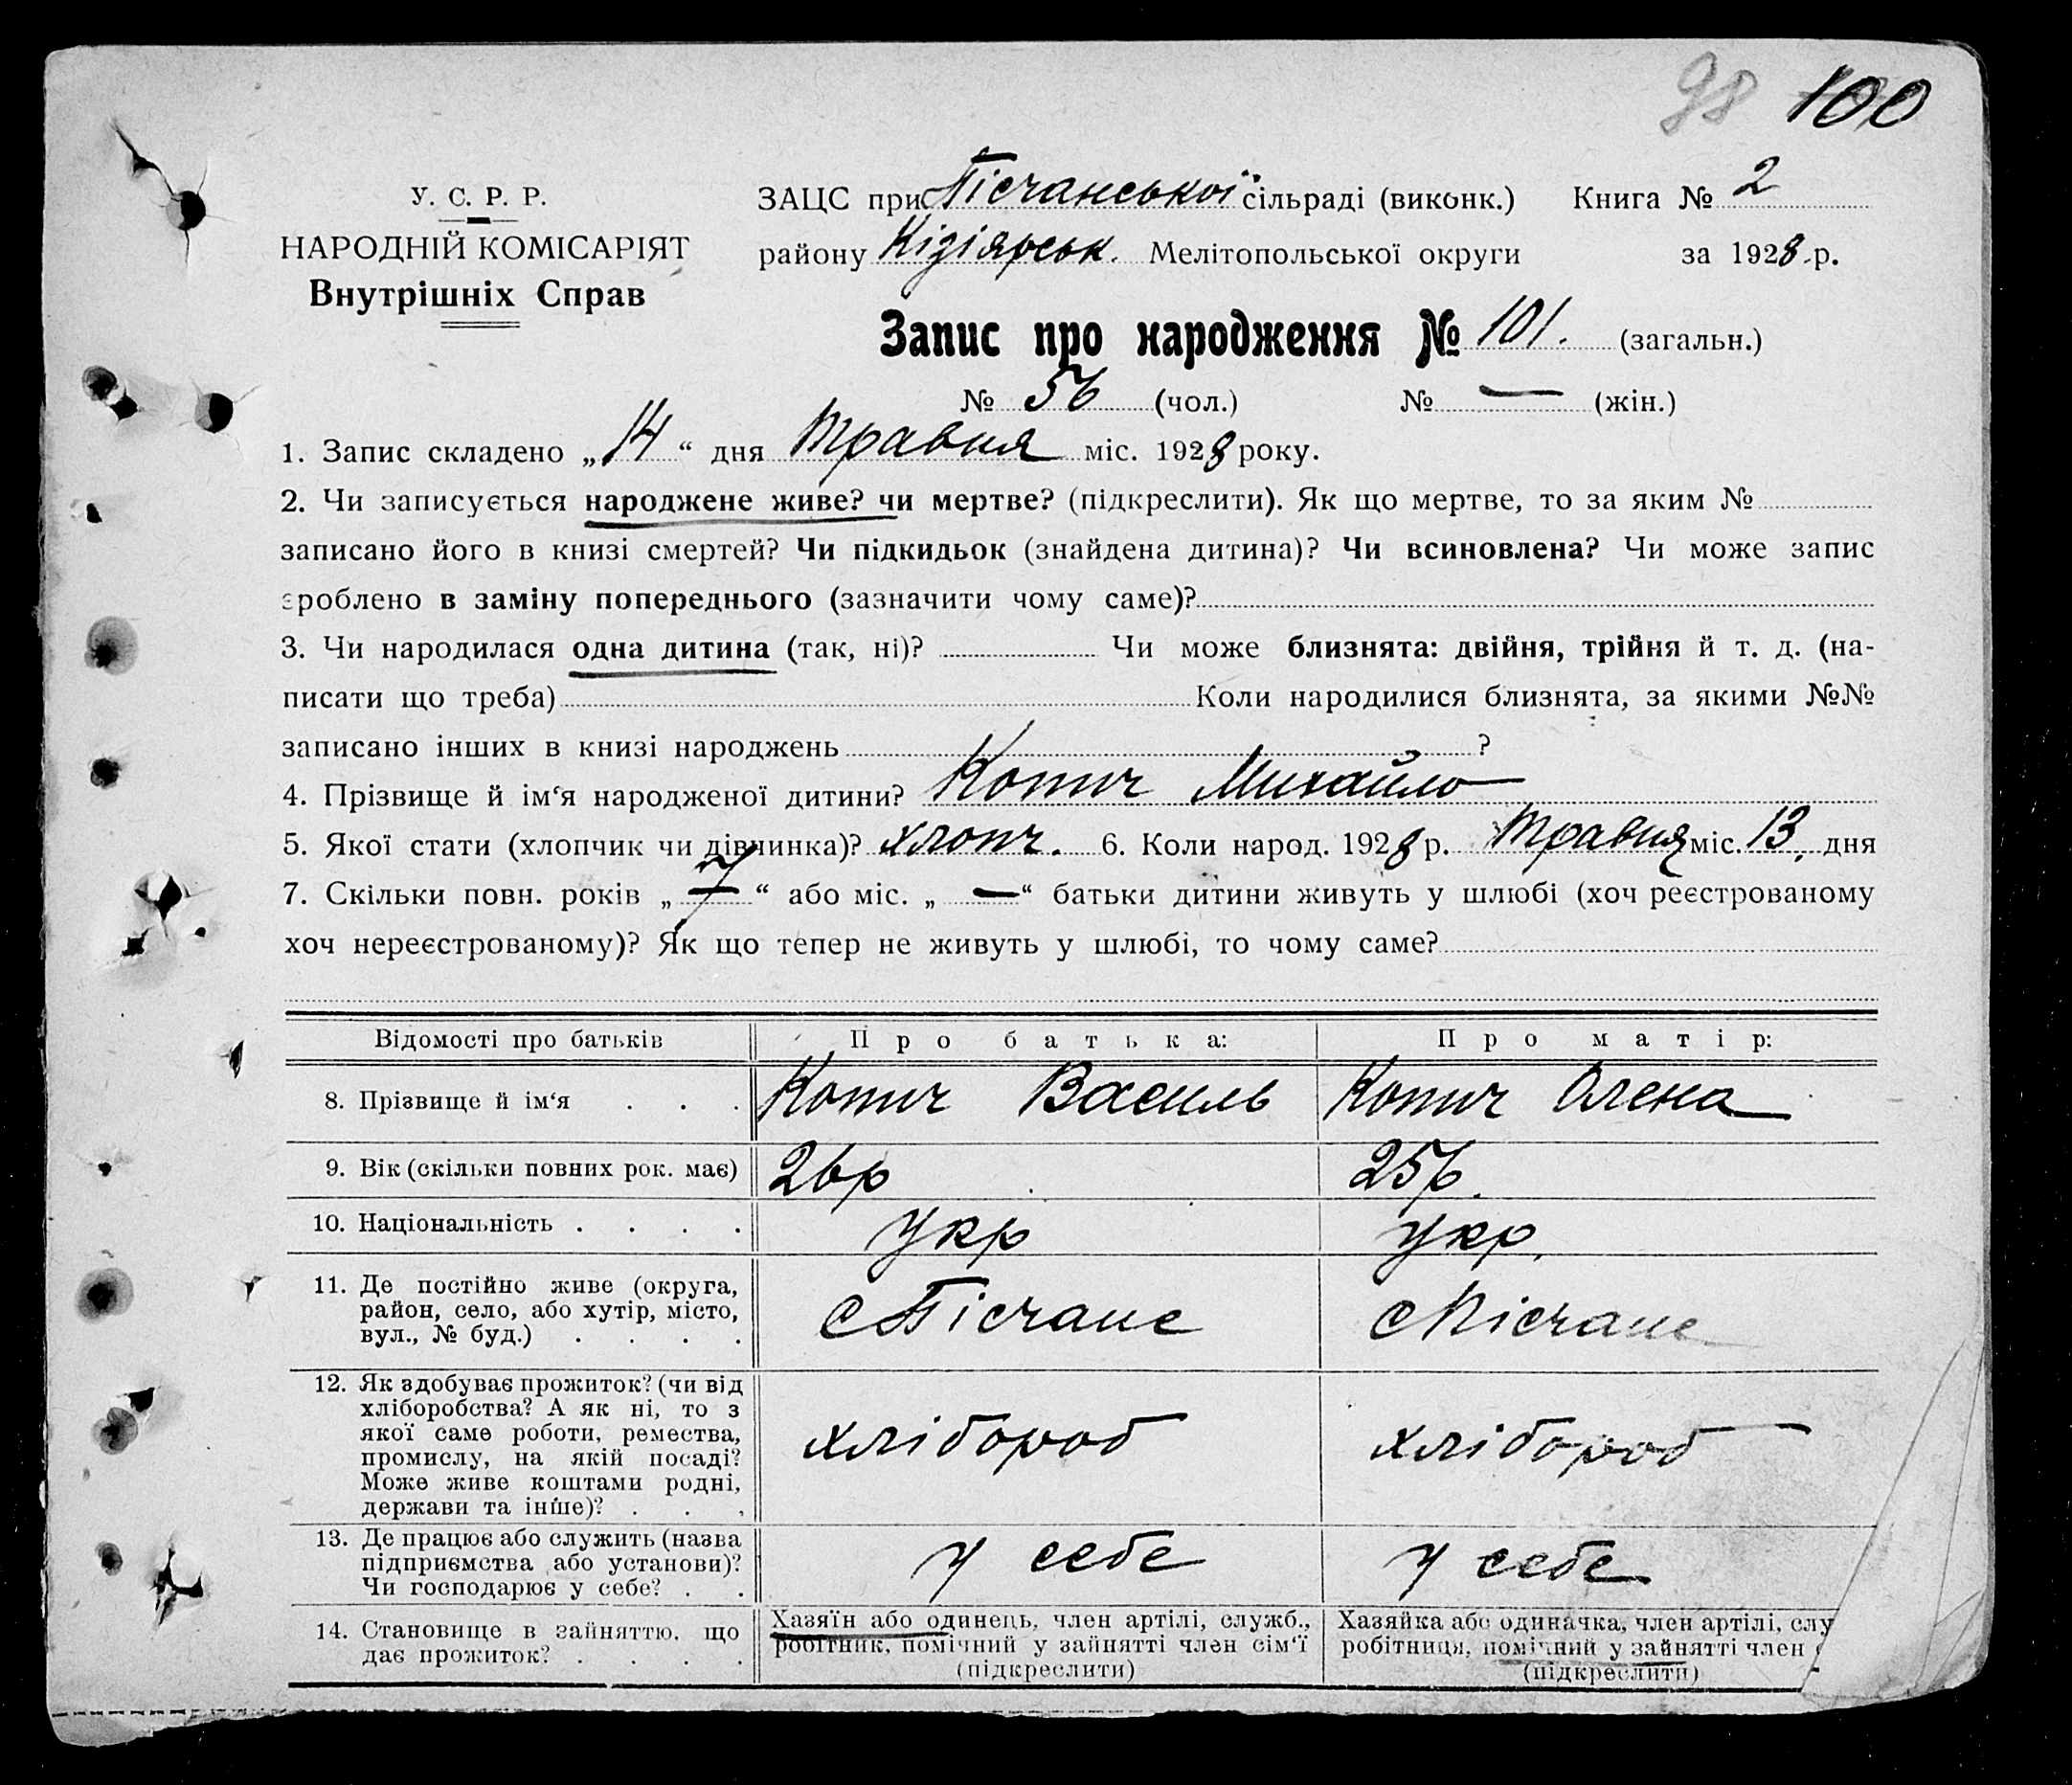 98 100
У. С. Р. Р.
НАРОДНІЙ КОМІСАРІЯТ
Внутрішніх Справ
ЗАЦС при Пісчанської сільраді (виконк.) Книга № 2
району Кізіярськ. Мелітопольської округи за 1928 р.
Запис про народження № 101. (загальн.)
№ 56 (чол.) № — (жін.)
1. Запис складено „14“ дня Травня міс. 1928 року.
2. Чи записується народжене живе? чи мертве? (підкреслити). Як що мертве, то за яким №
записано його в книзі смертей? Чи підкидьок (знайдена дитина)? Чи всиновлена? Чи може запис
зроблено в заміну попереднього (зазначити чому саме)?
3. Чи народилася одна дитина (так, ні)? Чи може близнята: двійня, трійня й т. д. (на-
писати що треба) Коли народилися близнята, за якими №№
записано інших в книзі народжень ?
4. Прізвище й ім‘я народженої дитини? Котич Михайло
5. Якої стати (хлопчик чи дівчинка)? хлопч. 6. Коли народ. 1928 р. Травня міс. 13, дня
7. Скільки повн. років „7“ або міс. „—“ батьки дитини живуть у шлюбі (хоч реєстрованому
хоч нереєстрованому)? Як що тепер не живуть у шлюбі, то чому саме?
Відомості про батьків Про батька: Про матір:
8. Прізвище й ім‘я . . . Котич Василь Котич Олена
9. Вік (скільки повних рок. має) 26р 25р.
10. Національність . . . . Укр Укр.
11. Де постійно живе (округа,
район, село, або хутір, місто,
вул., № буд.) . . . .
с Пісчане с Пісчане
12. Як здобуває прожиток? (чи від
хліборобства? А як ні, то з
якої саме роботи, ремества,
промислу, на якій посаді?
Може живе коштами родні,
держави та інше)? . . .
хлібороб хлібороб
13. Де працює або служить (назва
підприємства або установи)?
Чи господарює у себе? . .
у себе у себе
14. Становище в зайняттю, що
дає прожиток? . . . .
Хазяїн або одинець, член артілі, служб.,
робітник, помічний у зайнятті член сім‘ї
(підкреслити)
Хазяйка або одиначка, член артілі, слу
робітниця, помічний у зайнятті член
(підкреслити)